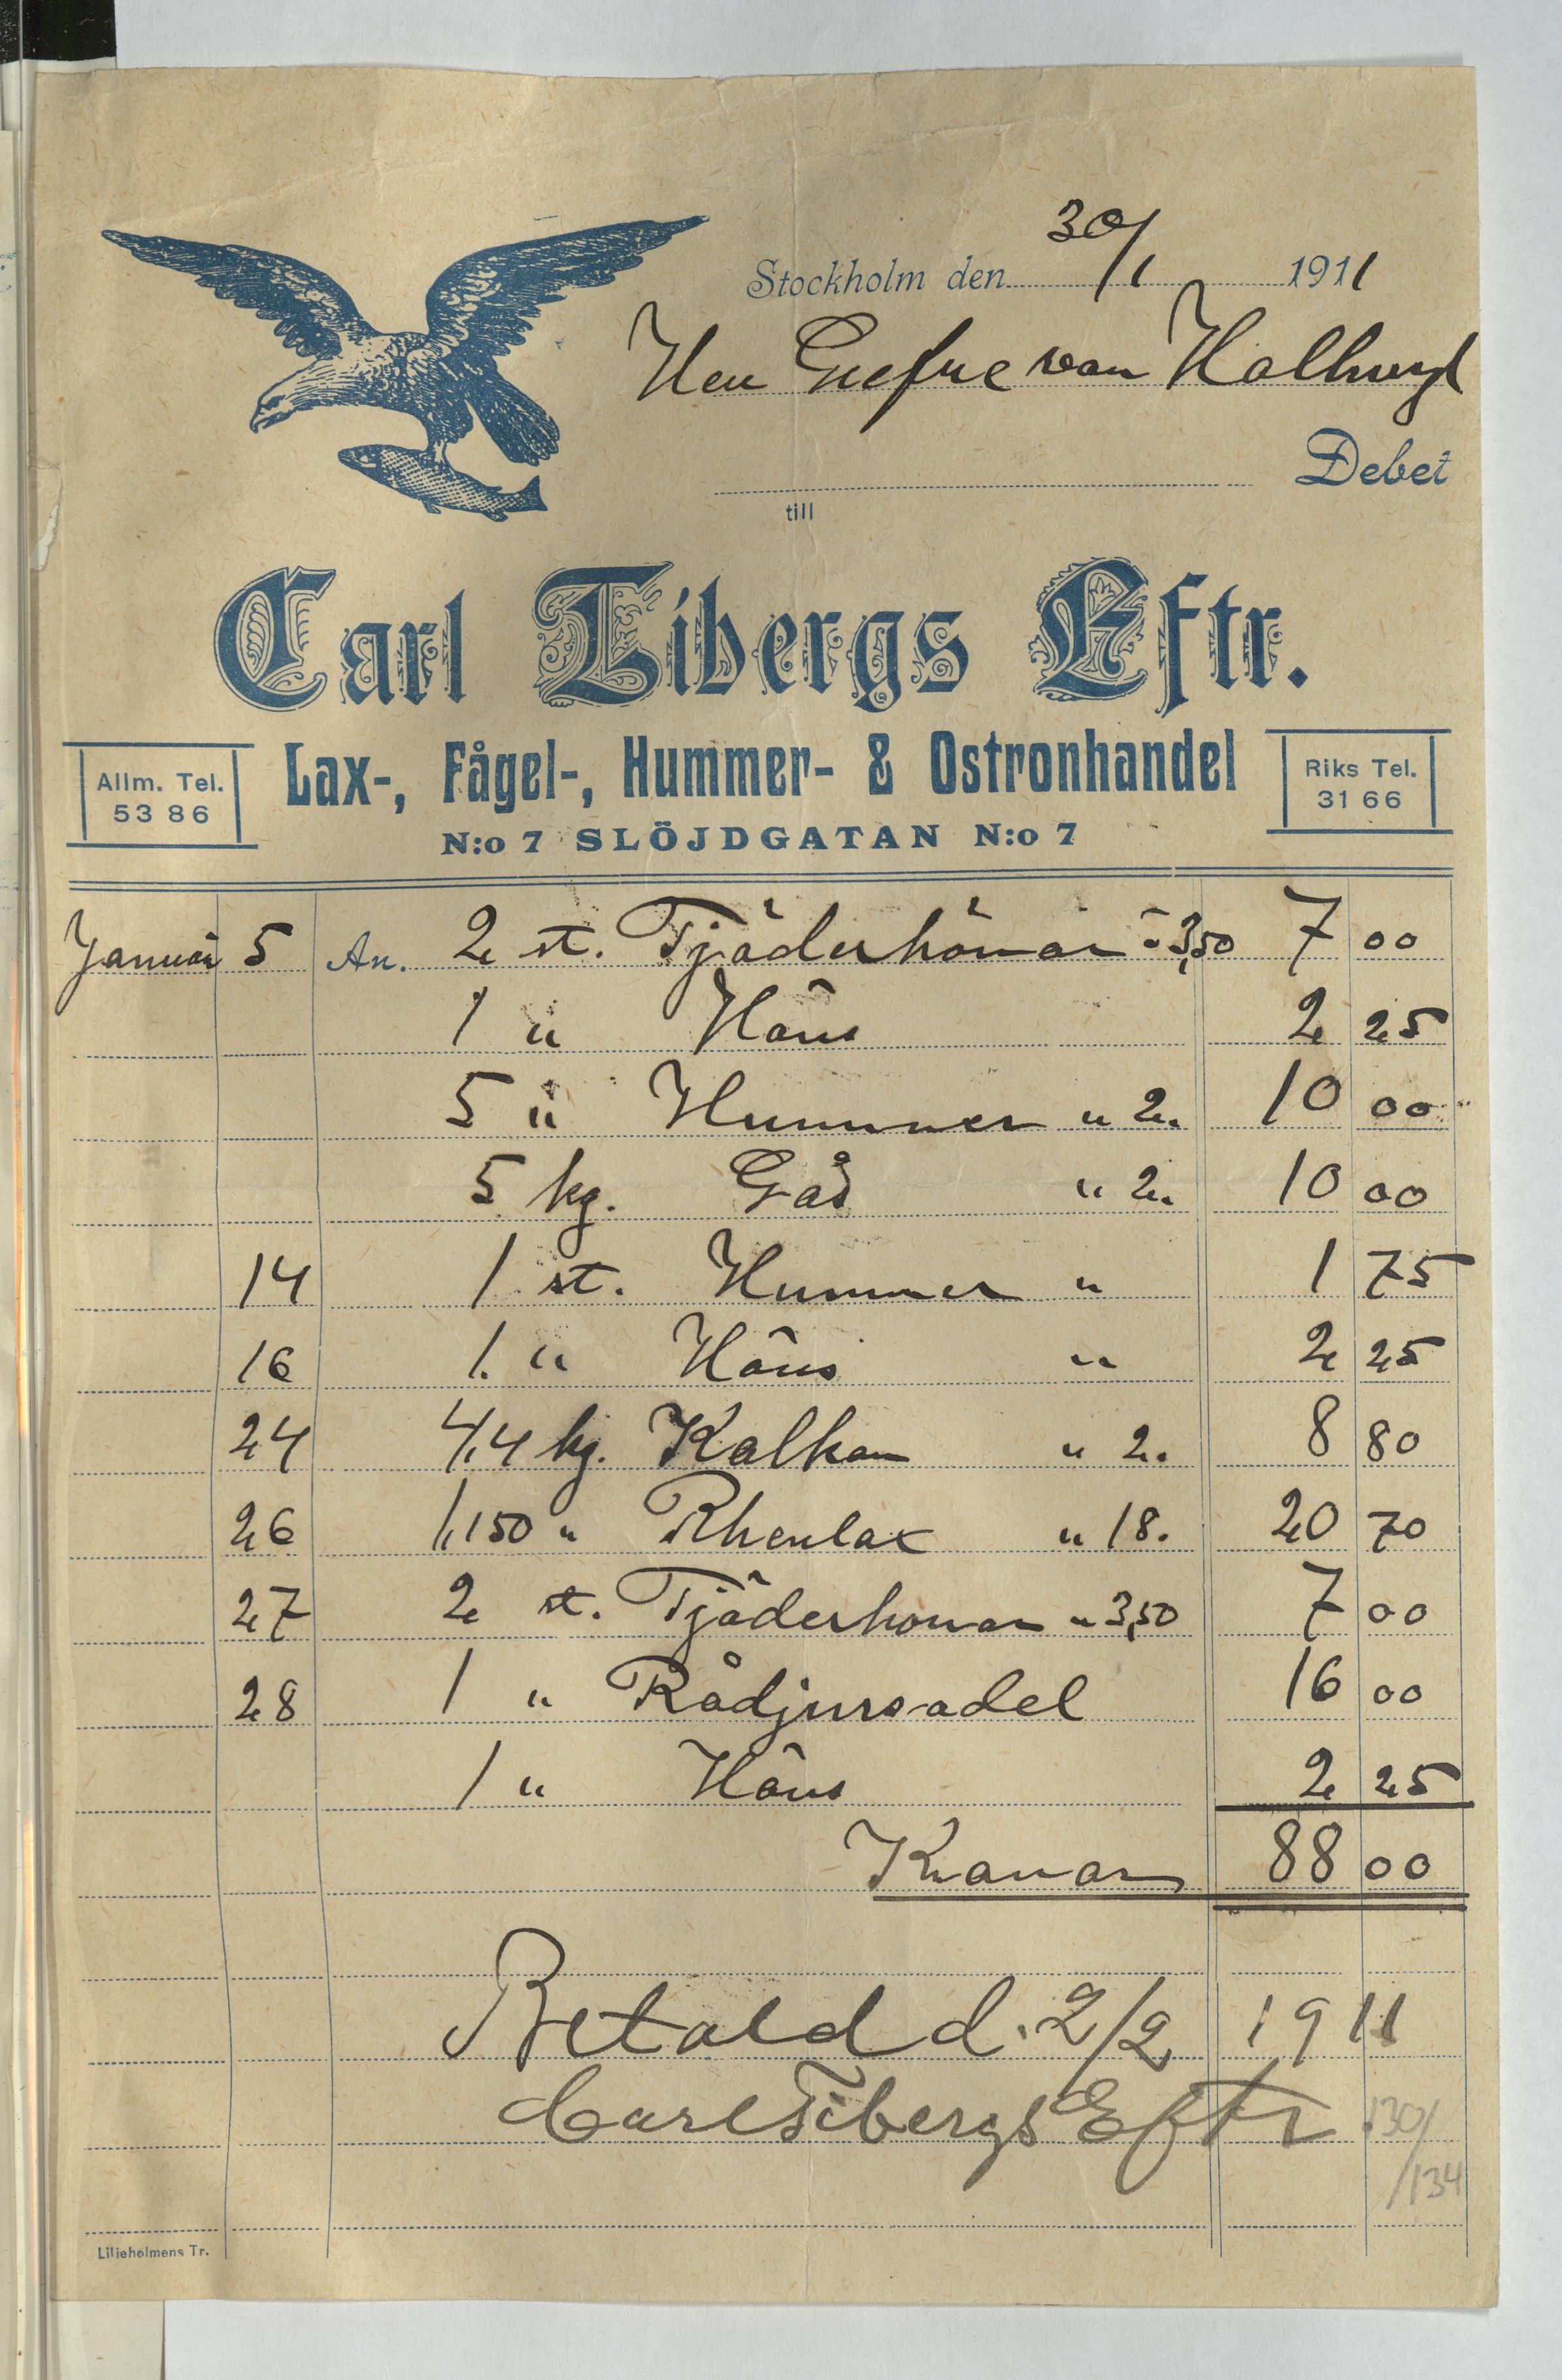 Stockholm den 30/1 1911
Herr Grefve von Hallwyl
Debet
till
Carl Tibergs Eftr.
Lax-, Fågel-, Hummer- & Ostronhandel
Allm. Tel. 53 86
Riks Tel. 31 66
N:o 7 SLÖJDGATAN N:o 7
Januari 5 An. 2 st. Tjäderhönor à 3,50 7 00
1 " Höns 2 25
5 " Hummer " 2. 10 00
5 kg. Gås " 2. 10 00
14 1 st. Hummer " 1 75
16 1. " Höns " 2 25
24 4,4 kg. Kalkon " 2. 8 80
26 1,150 " Rhenlax " 18. 20 70
27 2 st. Tjäderhönor " 3,50 7 00
28 1 " Rådjurssadel 16 00
1 " Höns 2 25
Kronor 88 00
Betald d. 2/2 1911
Carl Tibergs Eftr
130/
/134
Liljeholmens Tr.